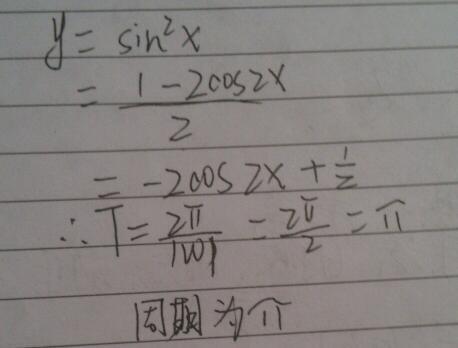 y = sin²x
= (1 - 2cos2x)/2
= -2cos 2x + 1/2
∴ T = 2π/|ω| = 2π/2 = π
周期为π